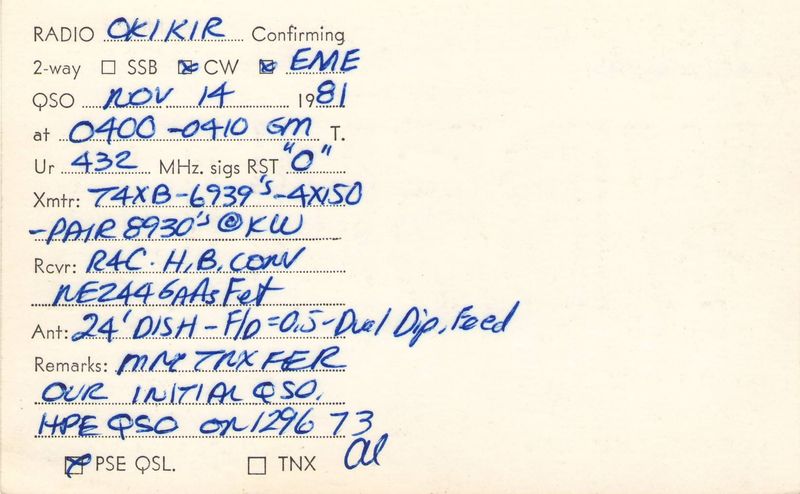 RADIO OK1KIR Confirming
2-way ☐ SSB ☒ CW ☒ EME
QSO NOV 14 1981
at 0400-0410 GM T.
Ur 432 MHz. sigs RST "O"
Xmtr: T4XB-6939's-4X150
-PAIR 8930's @ KW
Rcvr: R4C. H.B. CONV
NE244 GAAsFet
Ant: 24' DISH - F/D=0.5-Dual Dip. Feed
Remarks: MNI TNX FER
OUR INITIAL QSO.
HPE QSO ON 1296 73
Al
☒ PSE QSL. ☐ TNX